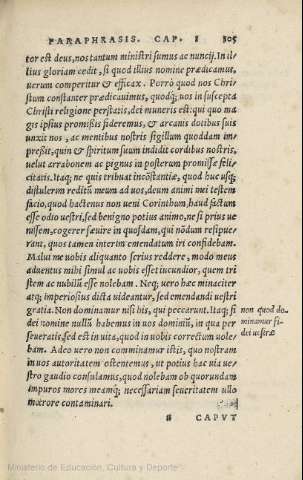 PARAPHRASIS. CAP. I 305
tor est deus, nos tantum ministri sumus ac nuncij. In il-
lius gloriam cedit, si quod illius nomine prædicamus,
uerum comperitur & efficax. Porrò quod nos Chri-
stum constanter prædicauimus, quodq; uos in suscepta
Christi religione perstatis, dei muneris est: qui quo ma
gis ipsius promißis fideremus, & arcanis dotibus suis
unxit nos, ac mentibus nostris sigillum quoddam im-
preßit, quin & spiritum suum indidit cordibus nostris,
uelut arrabonem ac pignus in posterum promissæ feli-
citatis. Itaq; ne quis tribuat incōstantiæ, quod huc usq;
distulerim reditū meum ad uos, deum animi mei testem
facio, quod hactenus non ueni Corinthum, haud factum
esse odio uestri, sed benigno potius animo, ne si prius ue
nissem, cogerer sæuire in quosdam, qui nōdum resipue-
rant, quos tamen interim emendatum iri confidebam.
Malui me uobis aliquanto serius reddere, modo meus
aduentus mihi simul ac uobis esset iucundior, quem tri
stem ac nubilū esse nolebam. Neq; uero hæc minaciter
atq; imperiosius dicta uideantur, sed emendandi uestri
gratia. Non dominamur nisi his, qui peccarunt. Itaq; fi
dei nomine nullū habemus in uos dominiū, in qua per
seueratis, sed est in uita, quod in uobis correctum uole-
bam. Adeo uero non comminamur istis, quo nostram
in uos autoritatem ostentemus, ut potius hac uia ue-
stro gaudio consulamus, quod nolebam ob quorundam
impuros mores meamq; necessariam seueritatem ullo
mœrore contaminari.
non quod do-
minamur fi-
dei uestræ
CAPVT
Ministerio de Educación, Cultura y Deporte